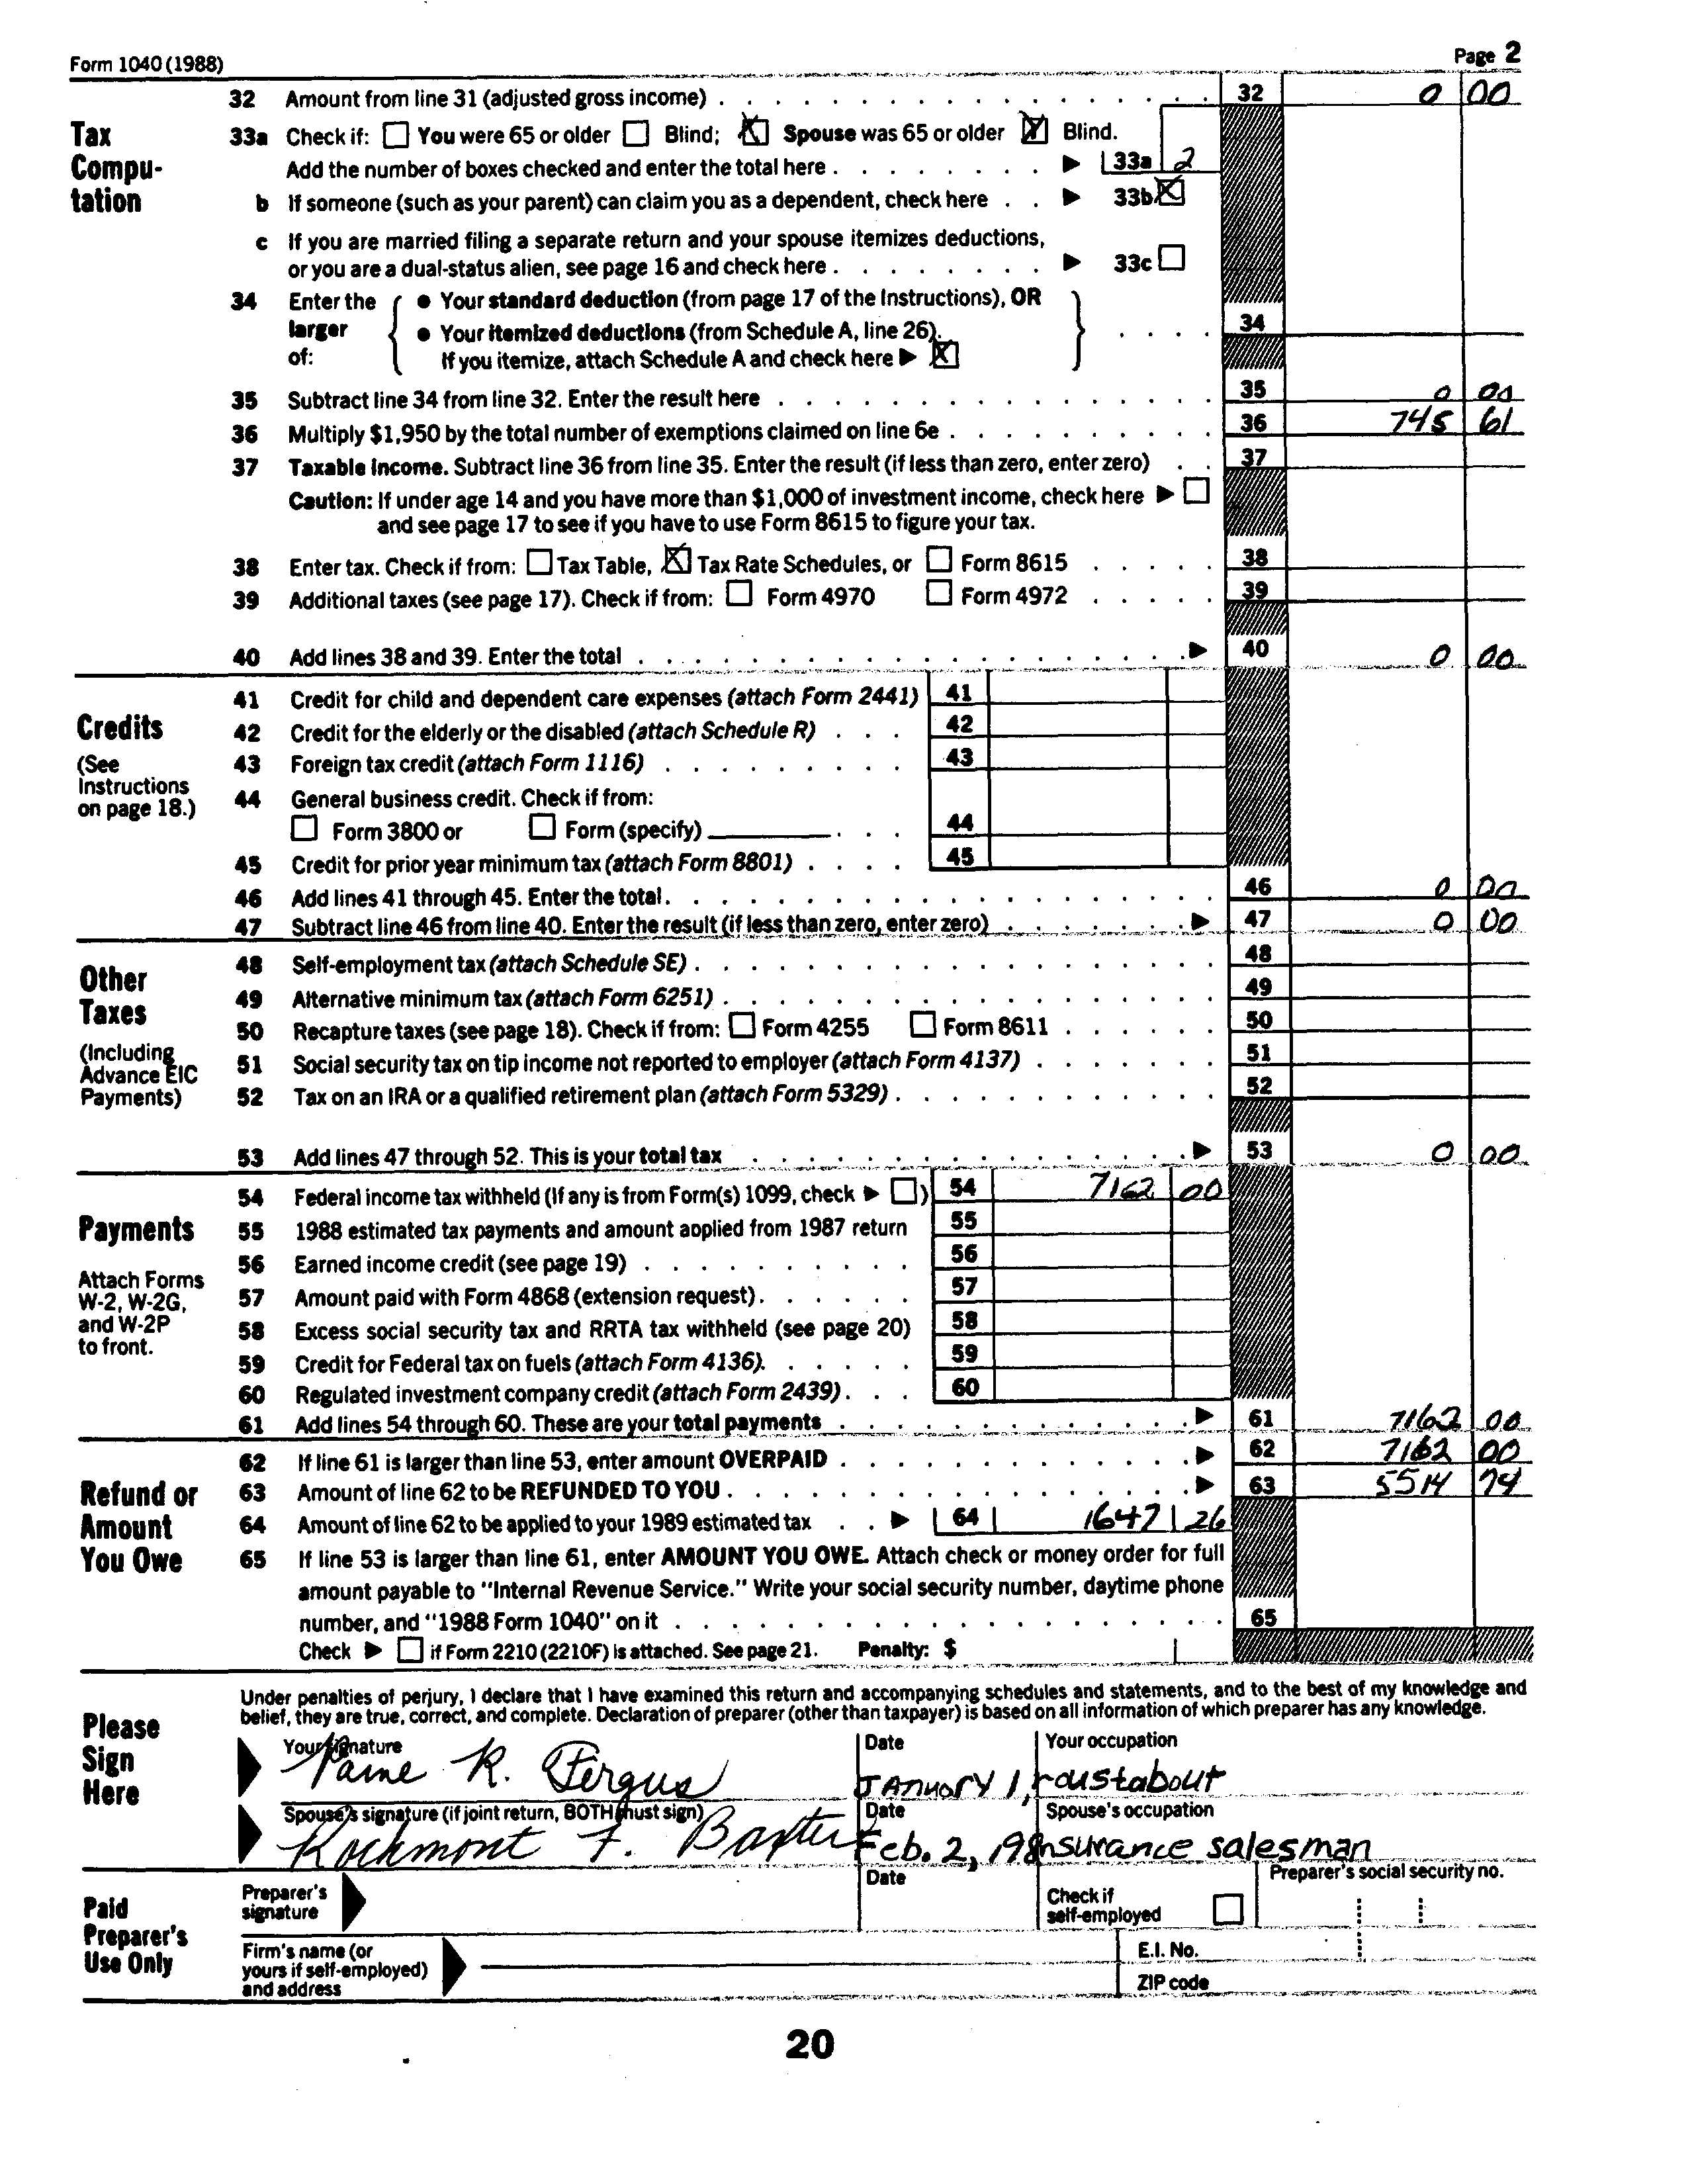 Form 1040 (1988) Page 2
32 Amount from line 31 (adjusted gross income) 32 0 00
Tax Compu- tation
33a Check if: You were 65 or older Blind; Spouse was 65 or older Blind.
Add the number of boxes checked and enter the total here 33a 2
b If someone (such as your parent) can claim you as a dependent, check here 33b
c If you are married filing a separate return and your spouse itemizes deductions,
or you are a dual-status alien, see page 16 and check here 33c
34 Enter the larger of:
• Your standard deduction (from page 17 of the Instructions), OR
• Your itemized deductions (from Schedule A, line 26).
If you itemize, attach Schedule A and check here
34
35 Subtract line 34 from line 32. Enter the result here 35 0 00
36 Multiply $1,950 by the total number of exemptions claimed on line 6e 36 745 61
37 Taxable income. Subtract line 36 from line 35. Enter the result (if less than zero, enter zero) 37
Caution: If under age 14 and you have more than $1,000 of investment income, check here
and see page 17 to see if you have to use Form 8615 to figure your tax.
38 Enter tax. Check if from: Tax Table, Tax Rate Schedules, or Form 8615 38
39 Additional taxes (see page 17). Check if from: Form 4970 Form 4972 39
40 Add lines 38 and 39. Enter the total 40 0 00
Credits
(See Instructions on page 18.)
41 Credit for child and dependent care expenses (attach Form 2441) 41
42 Credit for the elderly or the disabled (attach Schedule R) 42
43 Foreign tax credit (attach Form 1116) 43
44 General business credit. Check if from:
Form 3800 or Form (specify) 44
45 Credit for prior year minimum tax (attach Form 8801) 45
46 Add lines 41 through 45. Enter the total. 46 0 00
47 Subtract line 46 from line 40. Enter the result (if less than zero, enter zero) 47 0 00
Other Taxes
(Including Advance EIC Payments)
48 Self-employment tax (attach Schedule SE) 48
49 Alternative minimum tax (attach Form 6251) 49
50 Recapture taxes (see page 18). Check if from: Form 4255 Form 8611 50
51 Social security tax on tip income not reported to employer (attach Form 4137) 51
52 Tax on an IRA or a qualified retirement plan (attach Form 5329) 52
53 Add lines 47 through 52. This is your total tax 53 0 00
Payments
Attach Forms W-2, W-2G, and W-2P to front.
54 Federal income tax withheld (If any is from Form(s) 1099, check ) 54 7162 00
55 1988 estimated tax payments and amount applied from 1987 return 55
56 Earned income credit (see page 19) 56
57 Amount paid with Form 4868 (extension request) 57
58 Excess social security tax and RRTA tax withheld (see page 20) 58
59 Credit for Federal tax on fuels (attach Form 4136). 59
60 Regulated investment company credit (attach Form 2439) 60
61 Add lines 54 through 60. These are your total payments 61 7162 00
Refund or Amount You Owe
62 If line 61 is larger than line 53, enter amount OVERPAID 62 7162 00
63 Amount of line 62 to be REFUNDED TO YOU 63 5514 74
64 Amount of line 62 to be applied to your 1989 estimated tax 64 1647 26
65 If line 53 is larger than line 61, enter AMOUNT YOU OWE. Attach check or money order for full
amount payable to "Internal Revenue Service." Write your social security number, daytime phone
number, and "1988 Form 1040" on it 65
Check if Form 2210 (2210F) is attached. See page 21. Penalty: $
Please Sign Here
Under penalties of perjury, I declare that I have examined this return and accompanying schedules and statements, and to the best of my knowledge and
belief, they are true, correct, and complete. Declaration of preparer (other than taxpayer) is based on all information of which preparer has any knowledge.
Your signature Date Your occupation
R. Fergus January 1, roustabout
Spouse's signature (if joint return, BOTH must sign) Date Spouse's occupation
Rockmont F. Baxter Feb. 2, 198 insurance salesman
Paid Preparer's Use Only
Preparer's signature Date Check if self-employed Preparer's social security no.
Firm's name (or yours if self-employed) and address E.I. No.
ZIP code
20